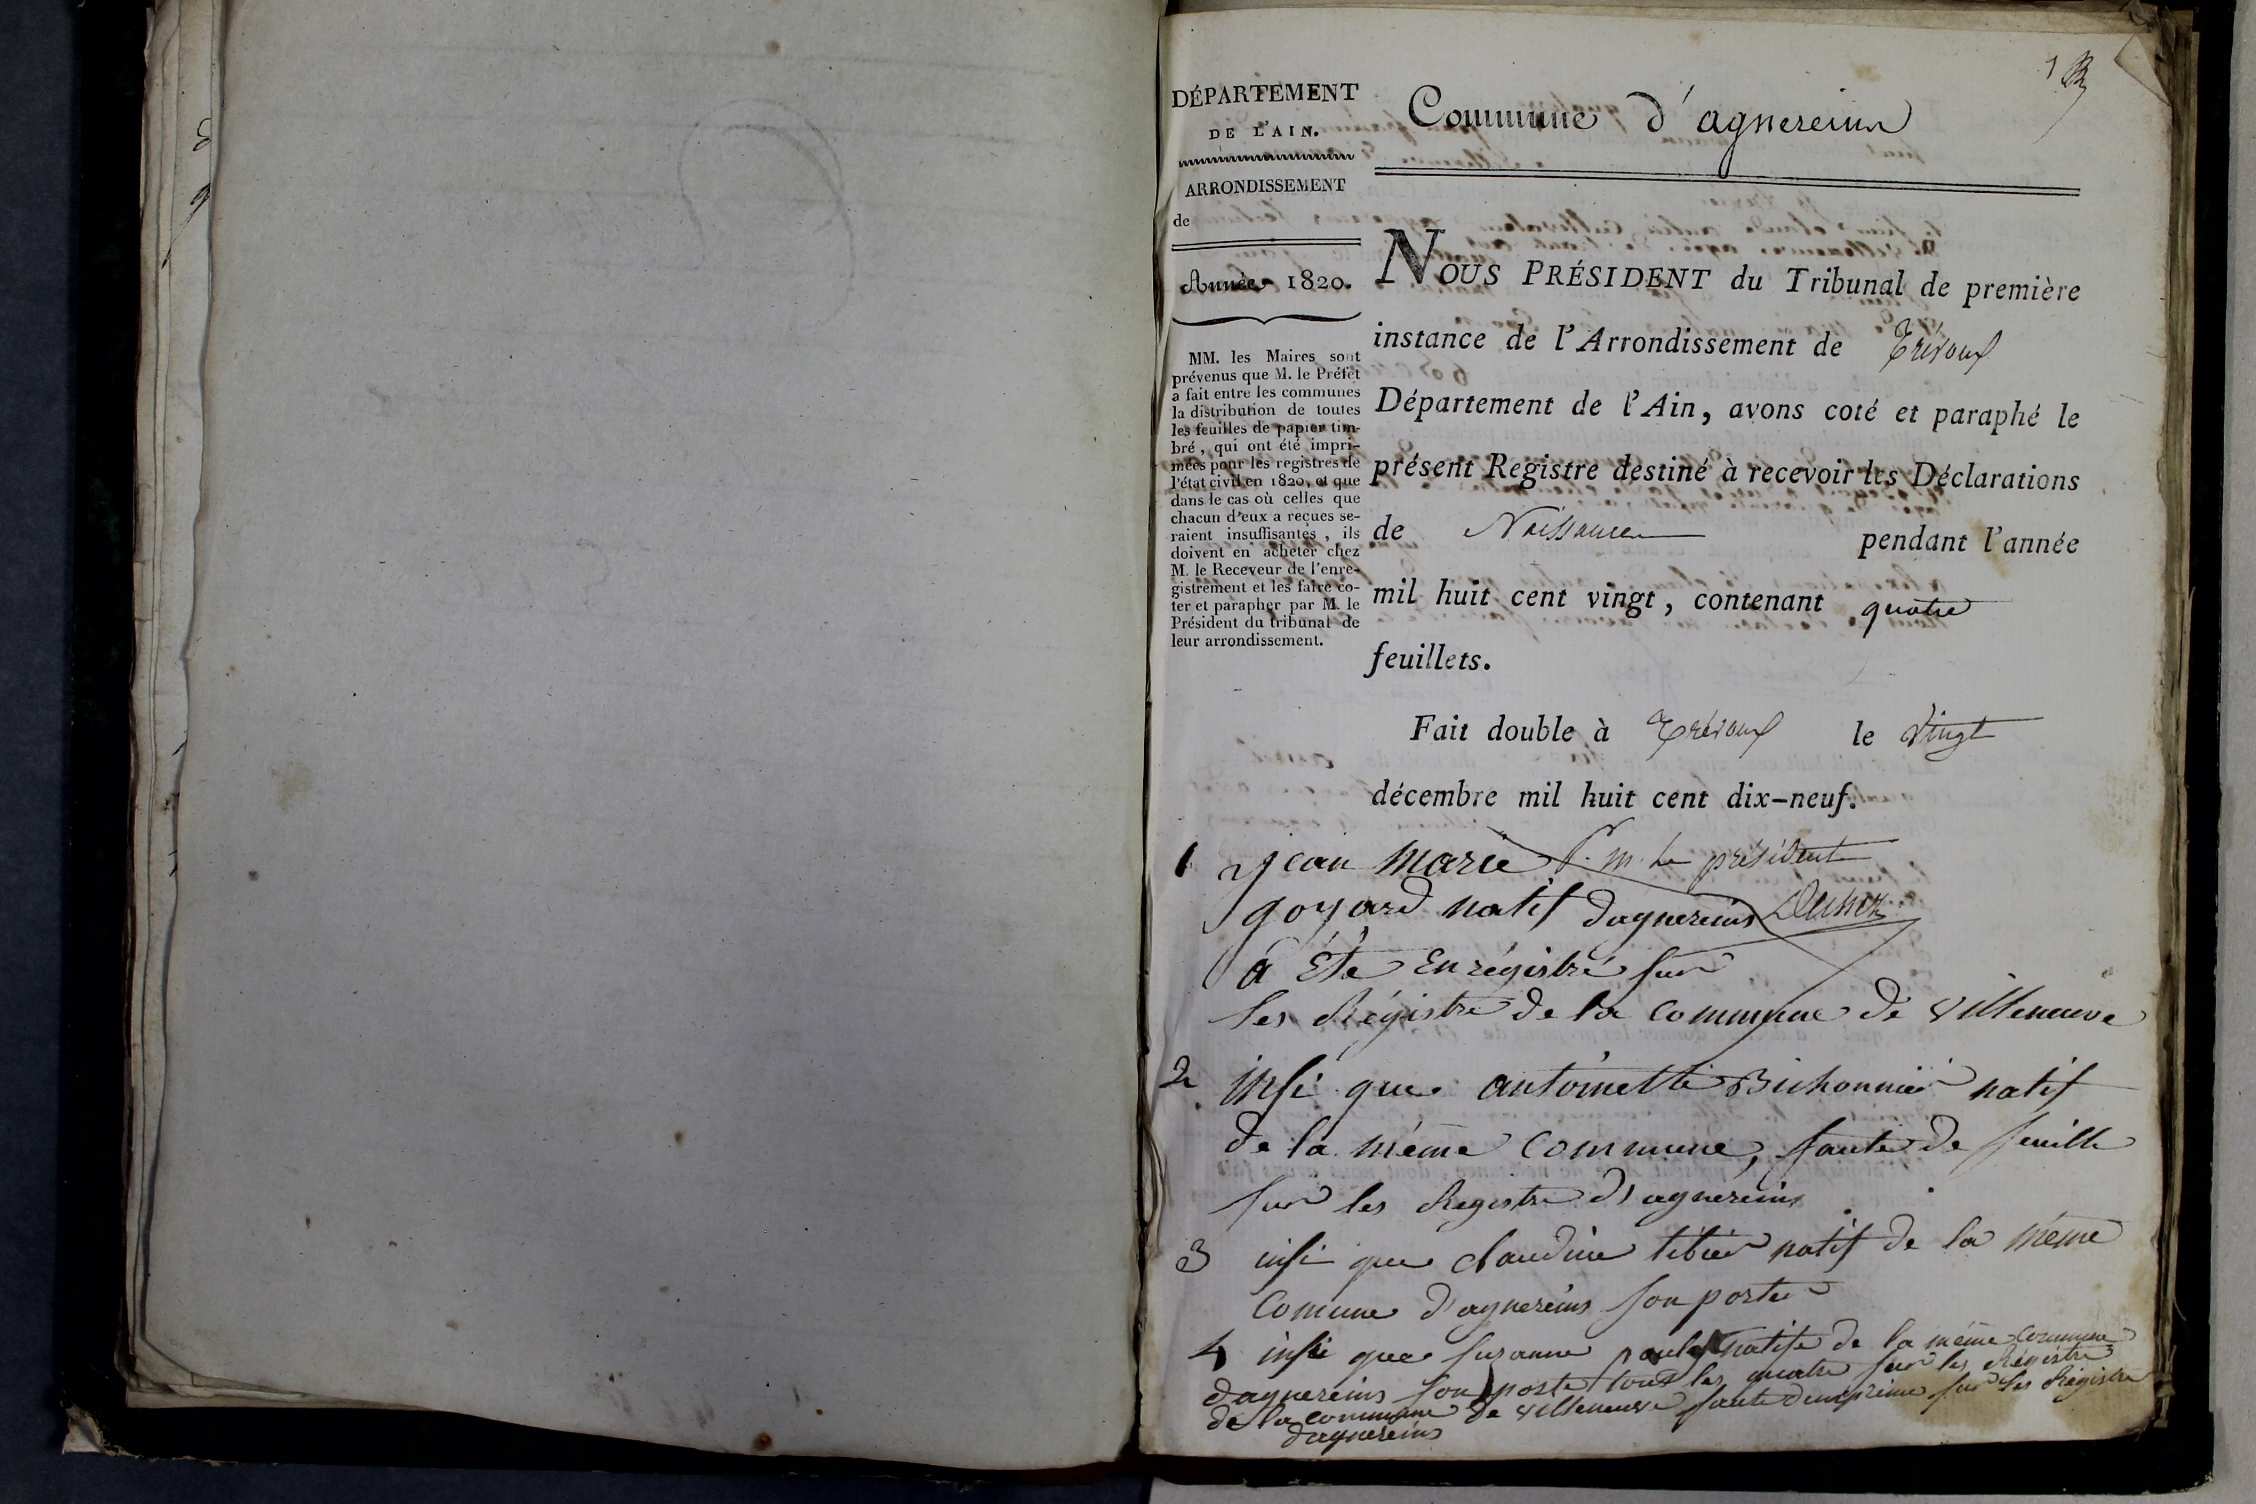 1
Commune d'agnereins
DÉPARTEMENT
DE L'AIN.
ARRONDISSEMENT
de
Année 1820.
MM. les Maires sont
prévenus que M. le Préfet
a fait entre les communes
la distribution de toutes
les feuilles de papier tim-
bré, qui ont été impri-
mées pour les registres de
l'état civil en 1820, et que
dans le cas où celles que
chacun d'eux a reçues se-
raient insuffisantes, ils
doivent en acheter chez
M. le Receveur de l'enre-
gistrement et les faire co-
ter et parapher par M. le
Président du tribunal de
leur arrondissement.
NOUS PRÉSIDENT du Tribunal de première
instance de l'Arrondissement de Trévoux
Département de l'Ain, avons coté et paraphé le
présent Registre destiné à recevoir les Déclarations
de Naissance pendant l'année
mil huit cent vingt, contenant quatre
feuillets.
Fait double à Trévoux le vingt
décembre mil huit cent dix-neuf.
P. m. le président
1 jean marie
goyard natif dagnereins
a été enrégistré sur
les Régistre de la commune de villeneuve
2 insi que antoinette Bichonnier natif
de la même commune, faute de feuille
sur les Registre d'agnereins
3 insi que claudine tibier natif de la même
comune d'agnereins son porter
4 insi que suzanne natife de la même commune
dagnereins son porte tous les quatre sur les Régistre
de la commune de villeneuve faute dimprime sur les Régistre
dagnereins